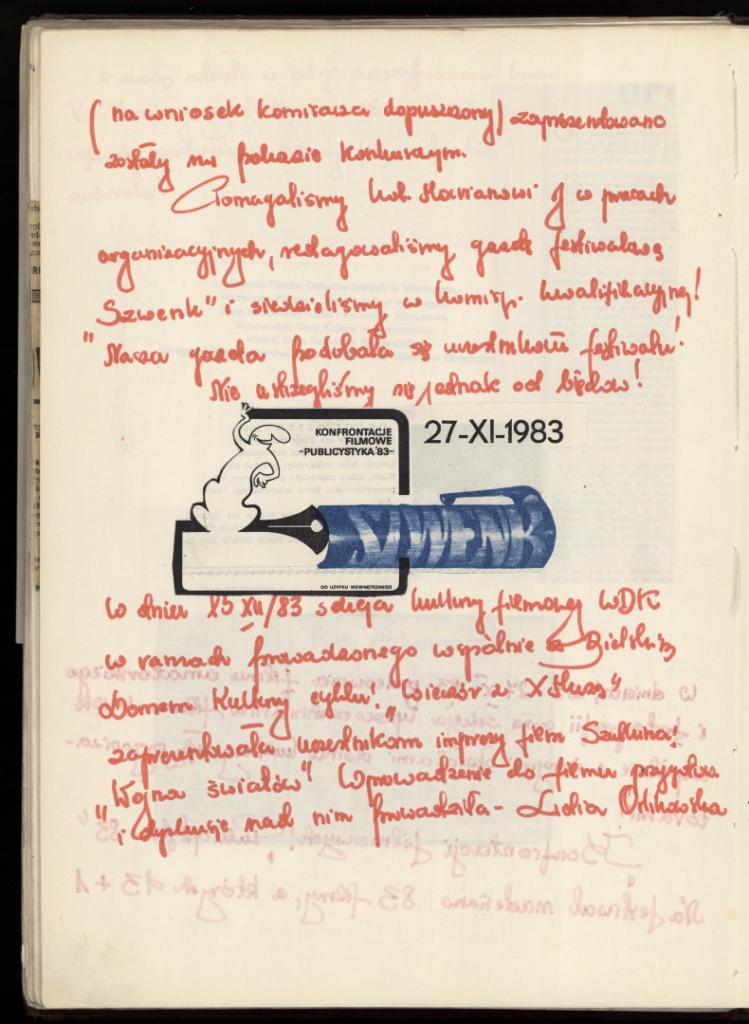 (na wniosek komisarza dopuszczony) zaprezentowano
zostały na pokazie konkursowym.
Pomagaliśmy kol. Marianowi J w pracach
organizacyjnych, redagowaliśmy gazetę festiwalową
"Szwenk" i siedzieliśmy w komisji kwalifikacyjnej!
Nasza gazeta podobała się uczestnikom festiwalu!
Nie ustrzegliśmy się jednak od błędów!
KONFRONTACJE
FILMOWE
-PUBLICYSTYKA '83-
27-XI-1983
SZWENK
DO UŻYTKU WEWNĘTRZNEGO
W dniu 15 XII/83 sekcja kultury filmowej WDK
w ramach prowadzonego wspólnie z Bielskim
Domem Kultury cyklu: "Wieczór z X Muzą"
zaprezentowała uczestnikom imprezy film Szulkina:
"Wojna światów" Wprowadzenie do filmu
i dyskusję nad nim prowadziła - Lidia